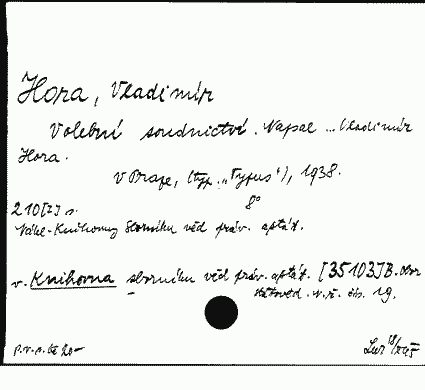 Hora, Vladimír
Volební soudnictví. Napsal ... Vladimír
Hora.
V Praze, (typ. „Typus“), 1938.
8°
210[2] s.
Nákl. Knihovny Sborníku věd práv. a stát.
v. Knihovna sborníku věd práv. a stát. [35103] B. obor
státověd. n. ř. čís. 19.